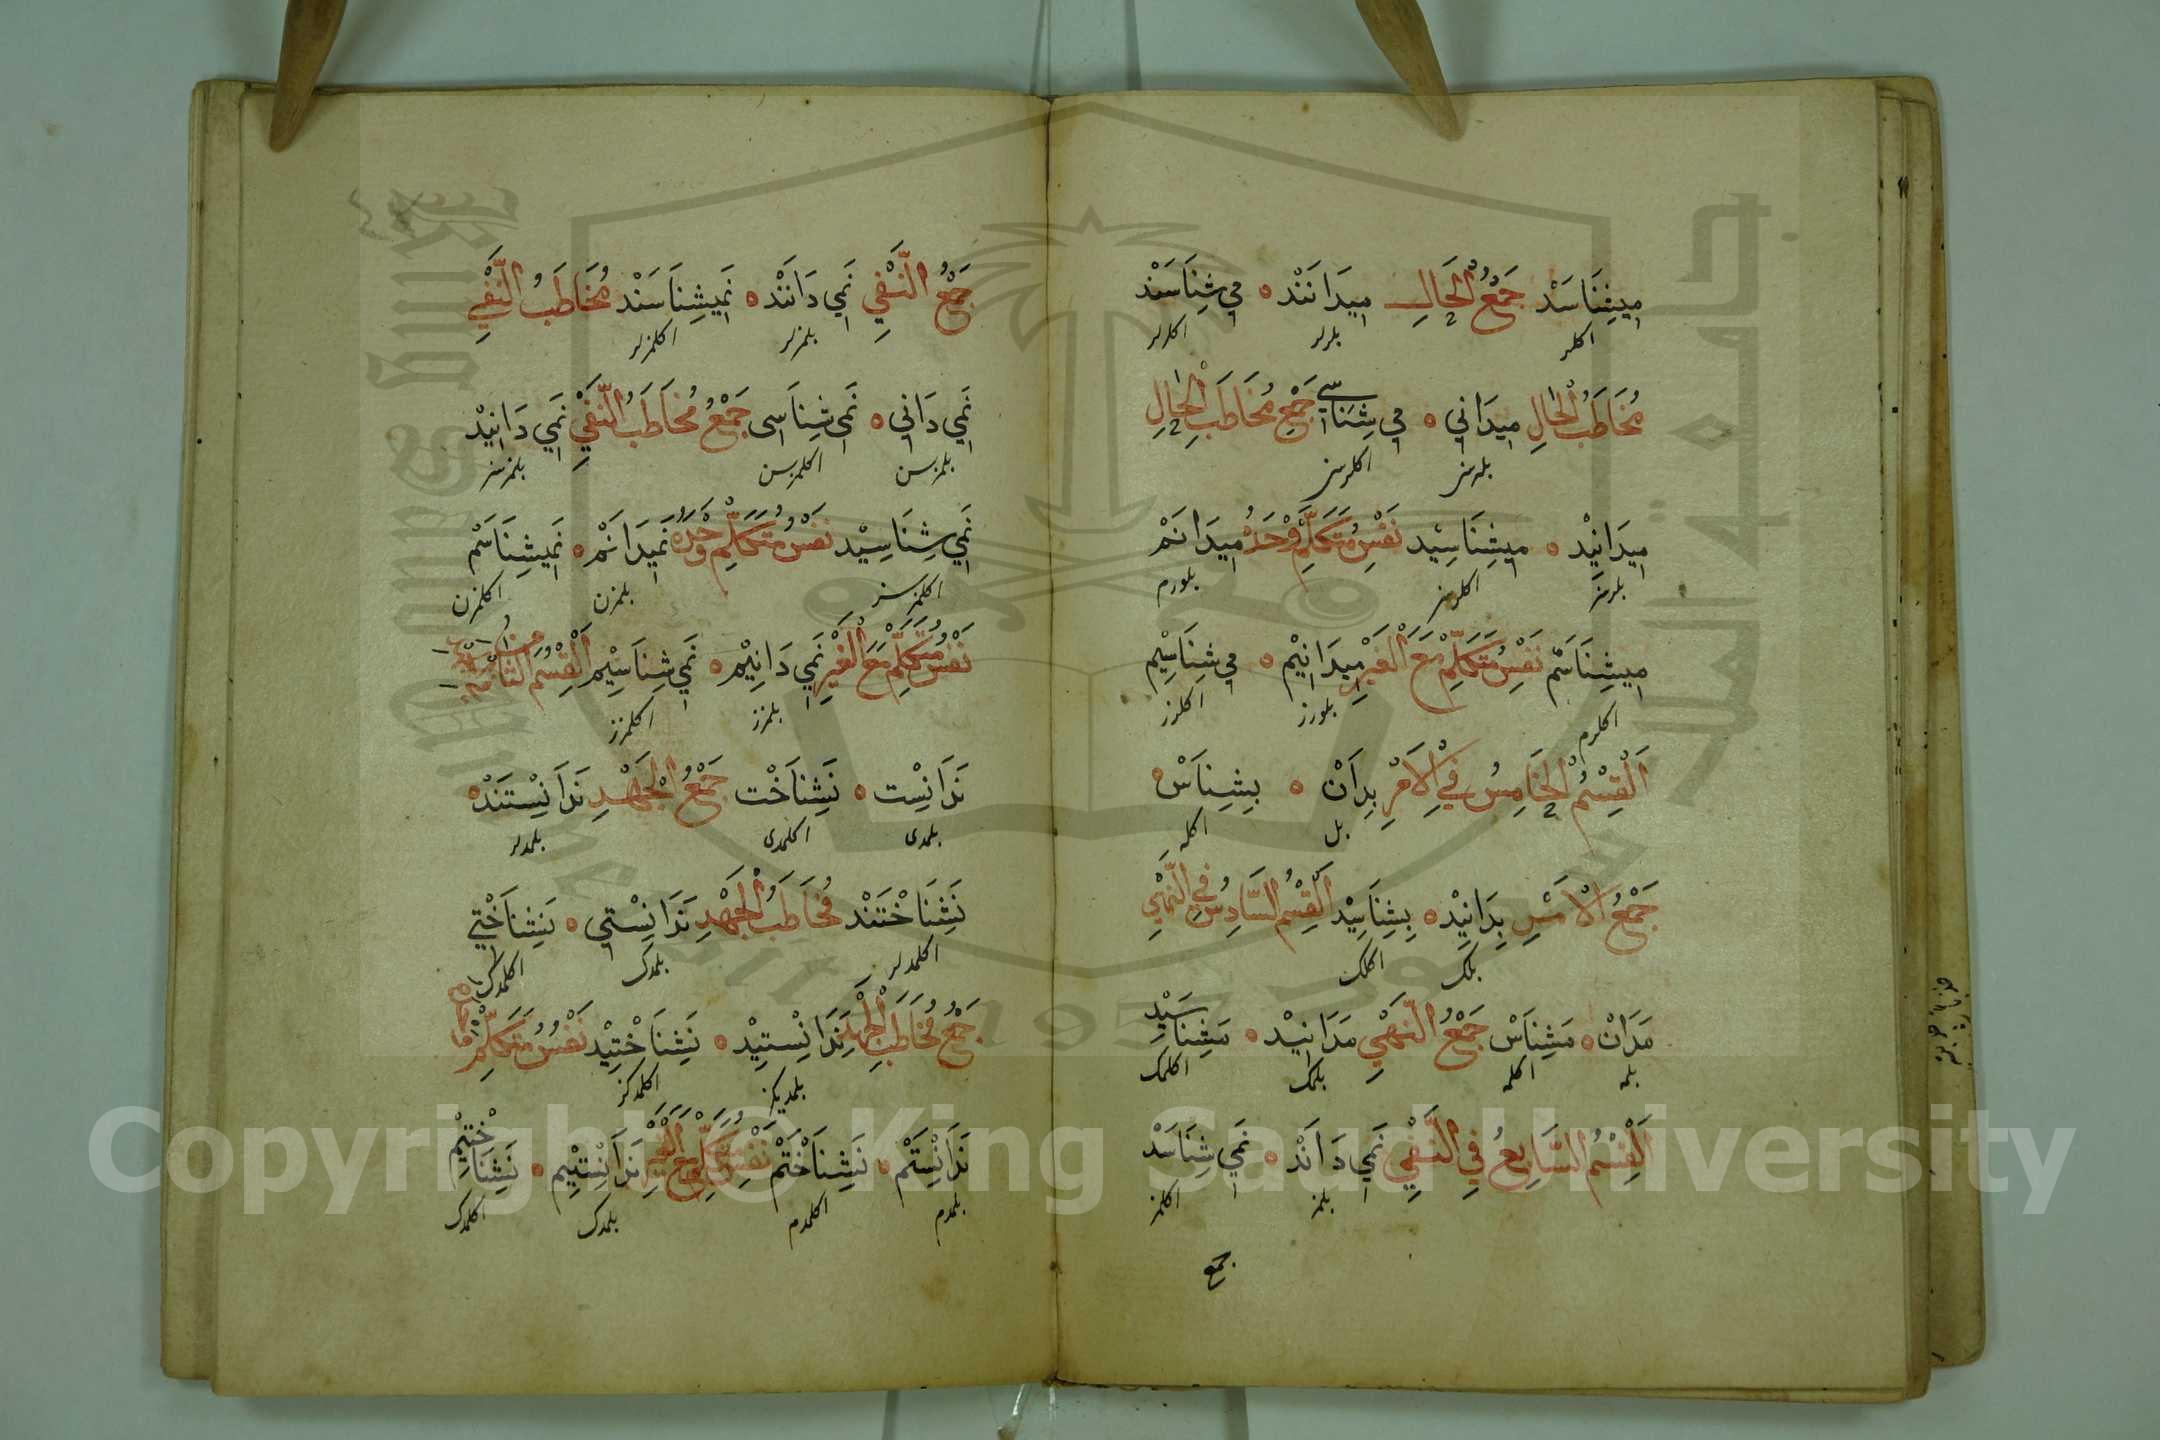 مِيشِنَاسَدْ جَمْعُ الْحَالِ مِيدَانَنْد ه مِي شِنَاسَنْد
اكلر بلرلر اكلرلر
مُخَاطَبُ الْحَالِ مِيدَانِي ه مِي شِنَاسِي جَمْعِ مُخَاطَبِ الْحَالِ
بلرسز اكلرسز
مِيدَانِيْد ه مِيشِنَاسِيْد نَفْسِ مُتَكَلِّمْ وَحْدَهُ مِيدَانَمْ
بلرسز اكلرسز بلورم
مِيشِنَاسَمْ نَفْسِ مُتَكَلِّمْ مَعَ الْغَيْرِ مِيدَانِيْم ه مِي شِنَاسِيْم
اكلرم بلورز اكلرز
اَلْقِسْمُ الْخَامِسُ فِي الْاَمْرِ بِدَانْ ه بِشِنَاسْ ه
بل اكله
جَمْعُ الْاَمْرِ بِدَانِيْد ه بِشِنَاسِيْد اَلْقِسْمُ السَّادِسُ فِي النَّهْيِ
بلك اكلك
مَدَانْ ه مَشِنَاسْ جَمْعُ النَّهْيِ مَدَانِيْد ه مَشِنَاسِيْد
بلمه اكلمه بلمك اكلمك
اَلْقِسْمُ السَّابِعُ فِي النَّفْيِ نَمِي دَانَدْ ه نَمِي شِنَاسَدْ
بلمز اكلمز
جمع
جَمْعُ النَّفْيِ نَمِي دَانَنْد ه نَمِيشِنَاسَنْد مُخَاطَبُ النَّفْيِ
بلمزلر اكلمزلر
نَمِي دَانِي ه نَمِي شِنَاسِى جَمْعُ مُخَاطَبُ النَّفْيِ نَمِي دَانِيْد
بلمزسن اكلمزسن بلمزسز
نَمِي شِنَاسِيْد نَفْسُ مُتَكَلِّمْ وَحْدَهُ نَمِيدَانَمْ ه نَمِيشِنَاسَمْ
اكلمزسز بلمزن اكلمزن
نَفْسُ مُتَكَلِّمْ مَعَ الْغَيْرِ نَمِي دَانِيْم ه نَمِي شِنَاسِيْم اَلْقِسْمُ الثَّامِنُ
بلمزز اكلمزز
نَدَانِسْت ه نَشِنَاخْت جَمْعُ الْجَهْدِ نَدَانِسْتَنْد ه
بلمدى اكلمدى بلمدلر
نَشِنَاخْتَنْد مُخَاطَبُ الْجَهْدِ نَدَانِسْتِي ه نَشِنَاخْتِي
اكلمدلر بلمدك اكلمدك
جَمْعُ مُخَاطَبِ الْجَهْدِ نَدَانِسْتِيْد ه نَشِنَاخْتِيْد نَفْسُ مُتَكَلِّمْ
بلمديكز اكلمدكز
نَدَانِسْتَمْ ه نَشِنَاخْتَمْ نَفْسِ مُتَكَلِّمْ مَعَ الْغَيْرِ نَدَانِسْتِيْم ه نَشِنَاخْتِيْم
بلمدم اكلمدم بلمدك اكلمدك
Copyright © King Saud University